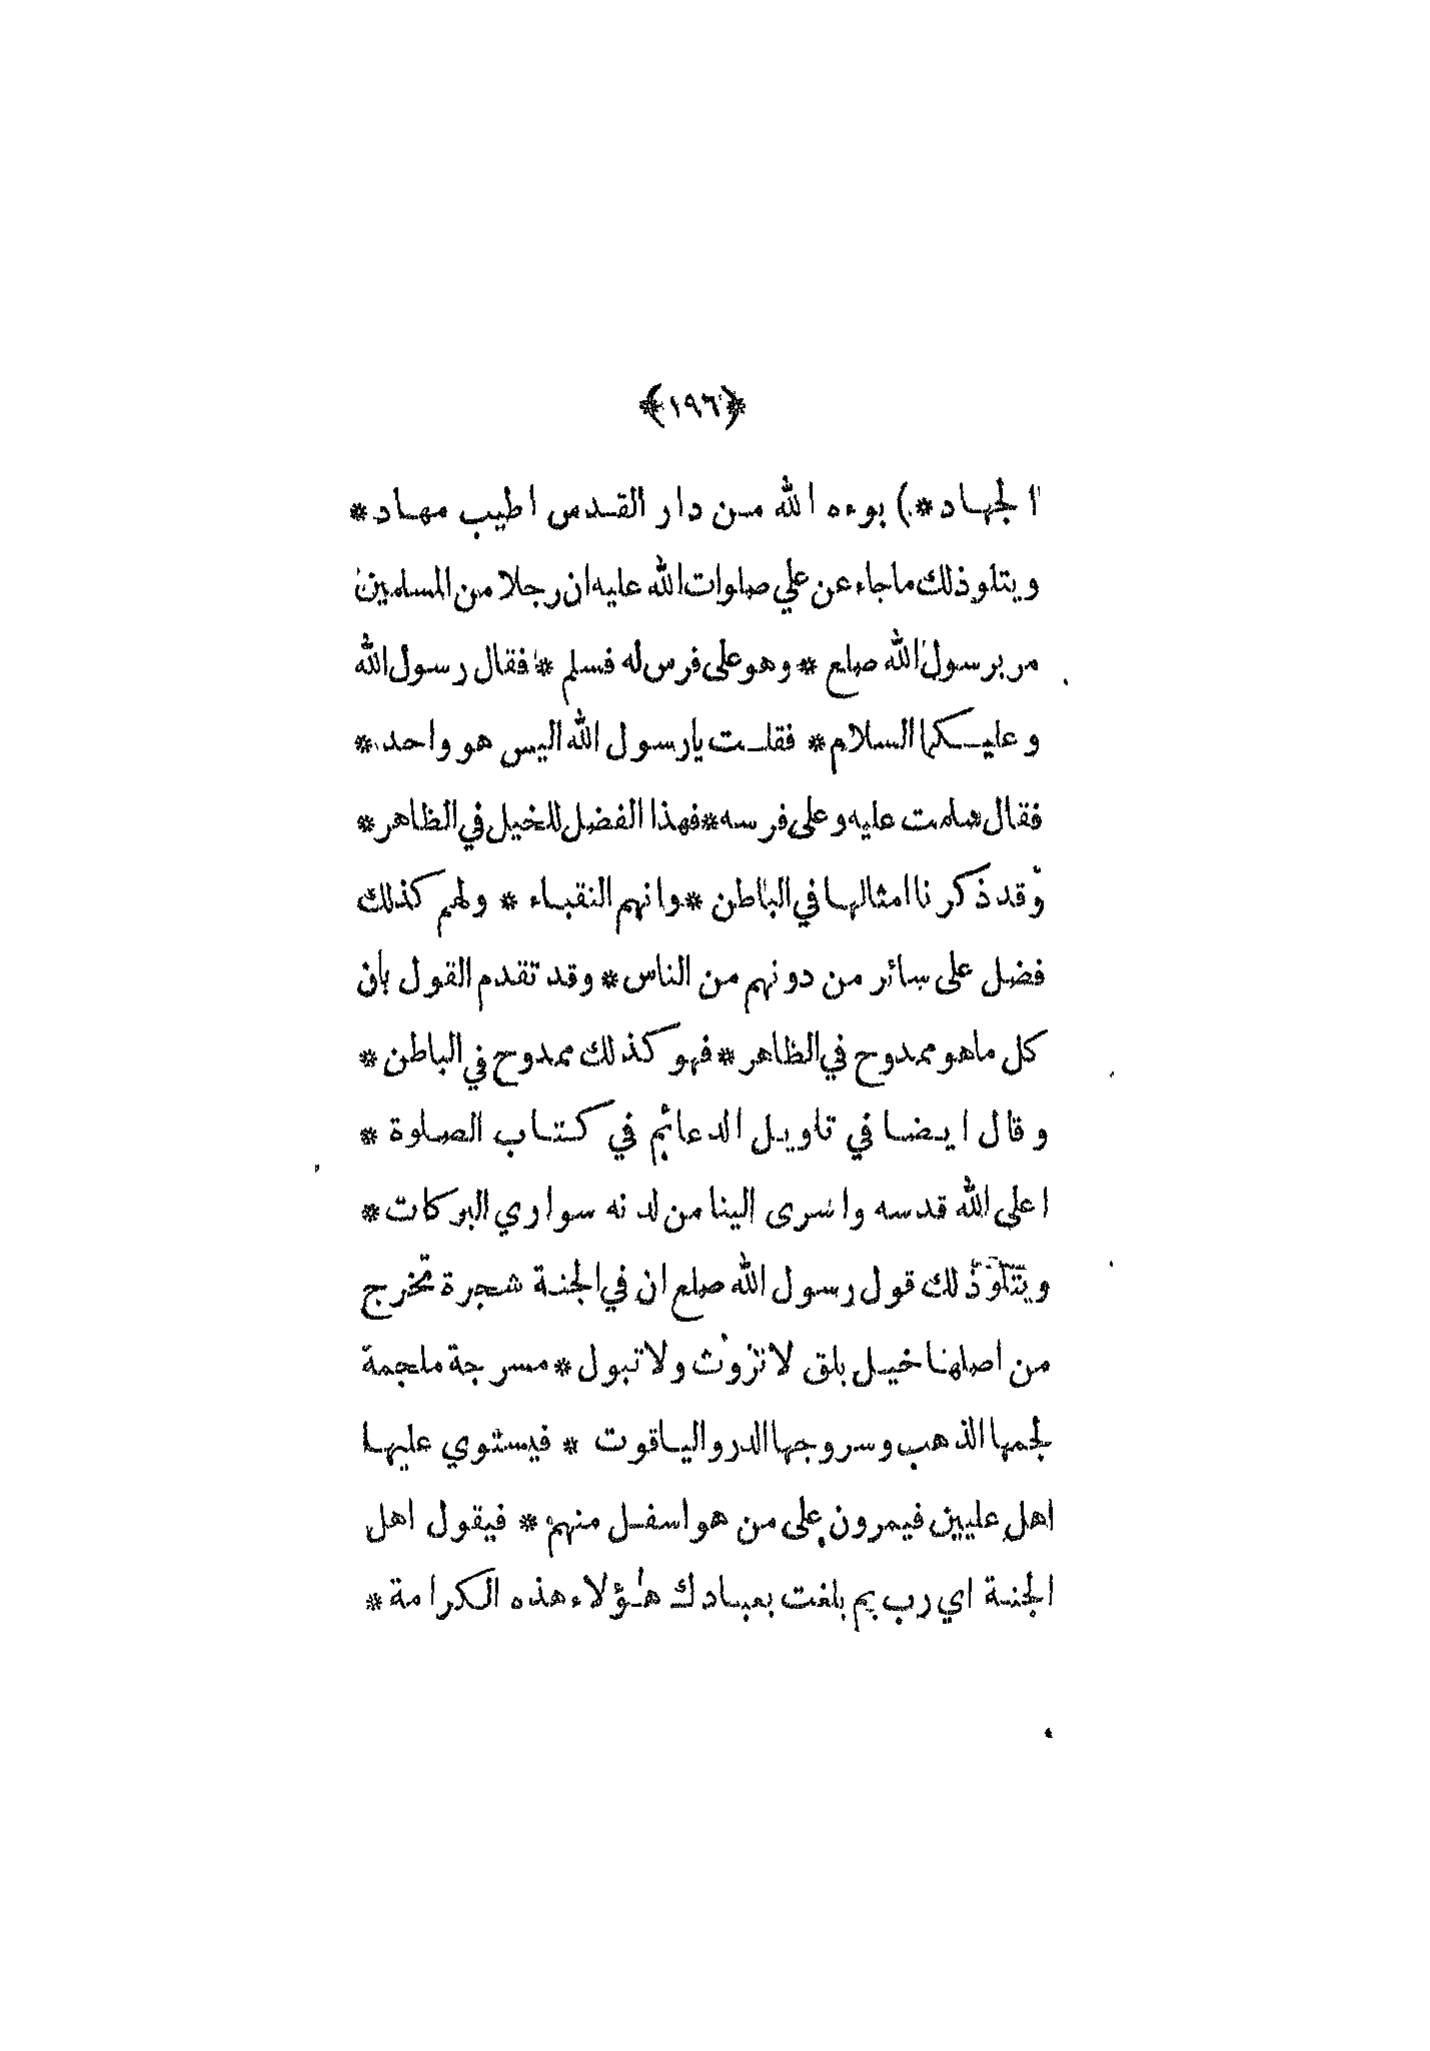 ﴿*١٩٦*﴾
الجهاد*) بوءه الله من دار القدس اطيب مهاد*
ويتلو ذلك ماجاء عن علي صلوات الله عليه ان رجلا من المسلمين
مر برسول الله صلع * وهو على فرس له فسلم * فقال رسول الله
وعليكما السلام* فقلت يارسول الله اليس هو واحد*
فقال سلمت عليه وعلى فرسه*فهذا الفضل للخيل في الظاهر*
وقد ذكرنا امثالها في الباطن *وانهم النقباء * ولهم كذلك
فضل على سائر من دونهم من الناس* وقد تقدم القول بان
كل ماهو ممدوح في الظاهر *فهو كذلك ممدوح في الباطن *
وقال ايضا في تاويل الدعائم في كتاب الصلوة *
اعلى الله قدسه واسرى الينا من لدنه سواري البركات*
ويتلو ذلك قول رسول الله صلع ان في الجنة شجرة تخرج
من اصلها خيل بلق لا تروث ولا تبول* مسرجة ملجمة
لجمها الذهب وسروجها الدر والياقوت * فيستوي عليها
اهل عليين فيمرون على من هو اسفل منهم * فيقول اهل
الجنة اي رب بم بلغت بعبادك هؤلاء هذه الكرامة *